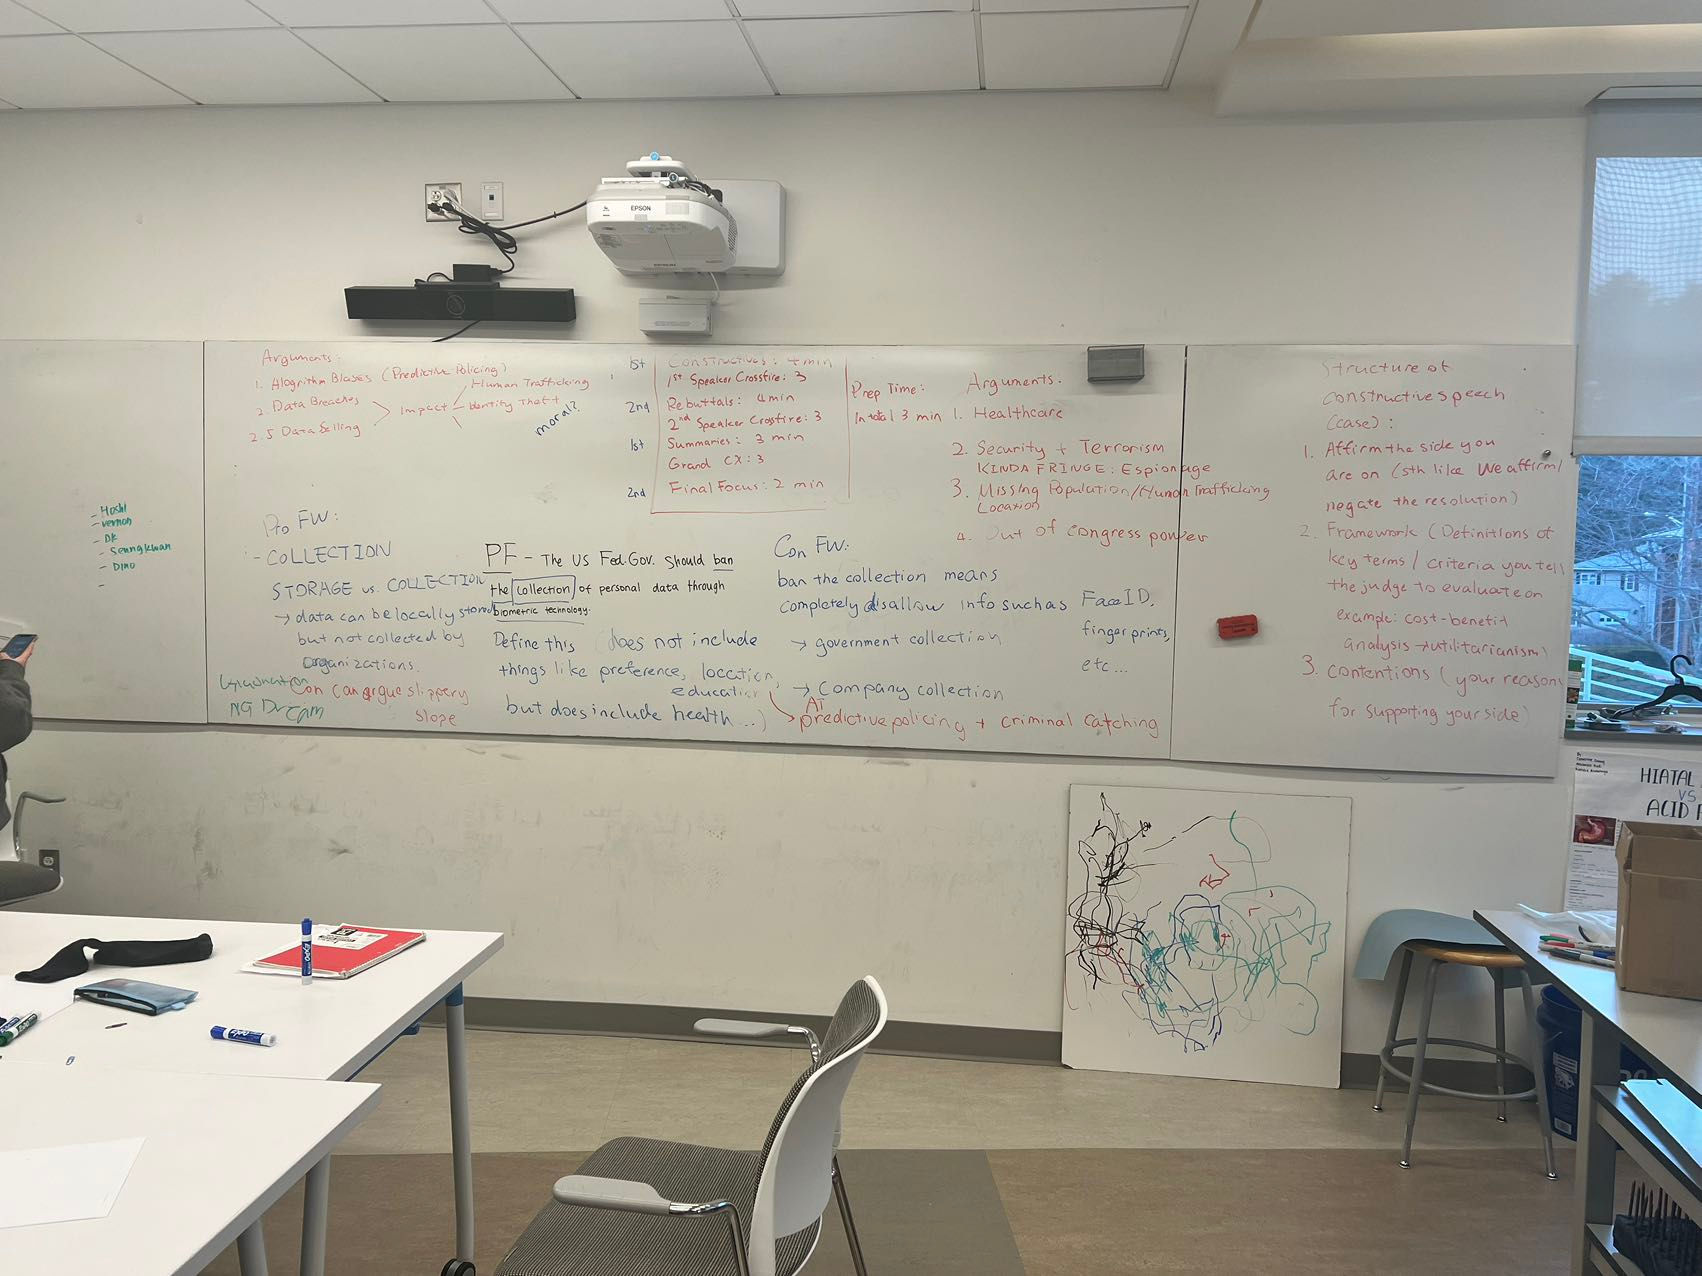 EPSON
Arguments:
1. Alogrithm Biases (Predictive Policing)
2. Data Breaches
2.5 Data Selling
Impact
Human Trafficking
Identity Theft
moral?
1st
2nd
1st
2nd
Constructives: 4 min
1st Speaker Crossfire: 3
Rebuttals: 4 min
2nd Speaker Crossfire: 3
Summaries: 3 min
Grand CX: 3
Final Focus: 2 min
Prep Time:
In total 3 min
Arguments:
1. Healthcare
2. Security + Terrorism
KINDA FRINGE: Espionage
3. Missing Population/Human Trafficking
Location
4. Out of congress power
Structure of
constructive speech
(case):
1. Affirm the side you
are on (sth like We affirm/
negate the resolution)
2. Framework (Definitions of
key terms / criteria you tell
the judge to evaluate on
example: cost-benefit
analysis → utilitarianism)
3. contentions (your reasons
for supporting your side)
- Hoshi
- vernon
- DK
- Seungkwan
- Dino
-
Pro FW:
- COLLECTION
STORAGE vs. COLLECTION
→ data can be locally stored
but not collected by
organizations.
Con can argue slippery
slope
NG Dream
PF - The US Fed. Gov. Should ban
the collection of personal data through
biometric technology.
Define this (does not include
things like preference, location,
education
but does include health...)
Con FW:
ban the collection means
completely disallow info such as FaceID,
fingerprints,
etc...
→ government collection
→ Company collection
AI
predictive policing + criminal catching
EXPO
EXPO
HIATAL
VS
ACID